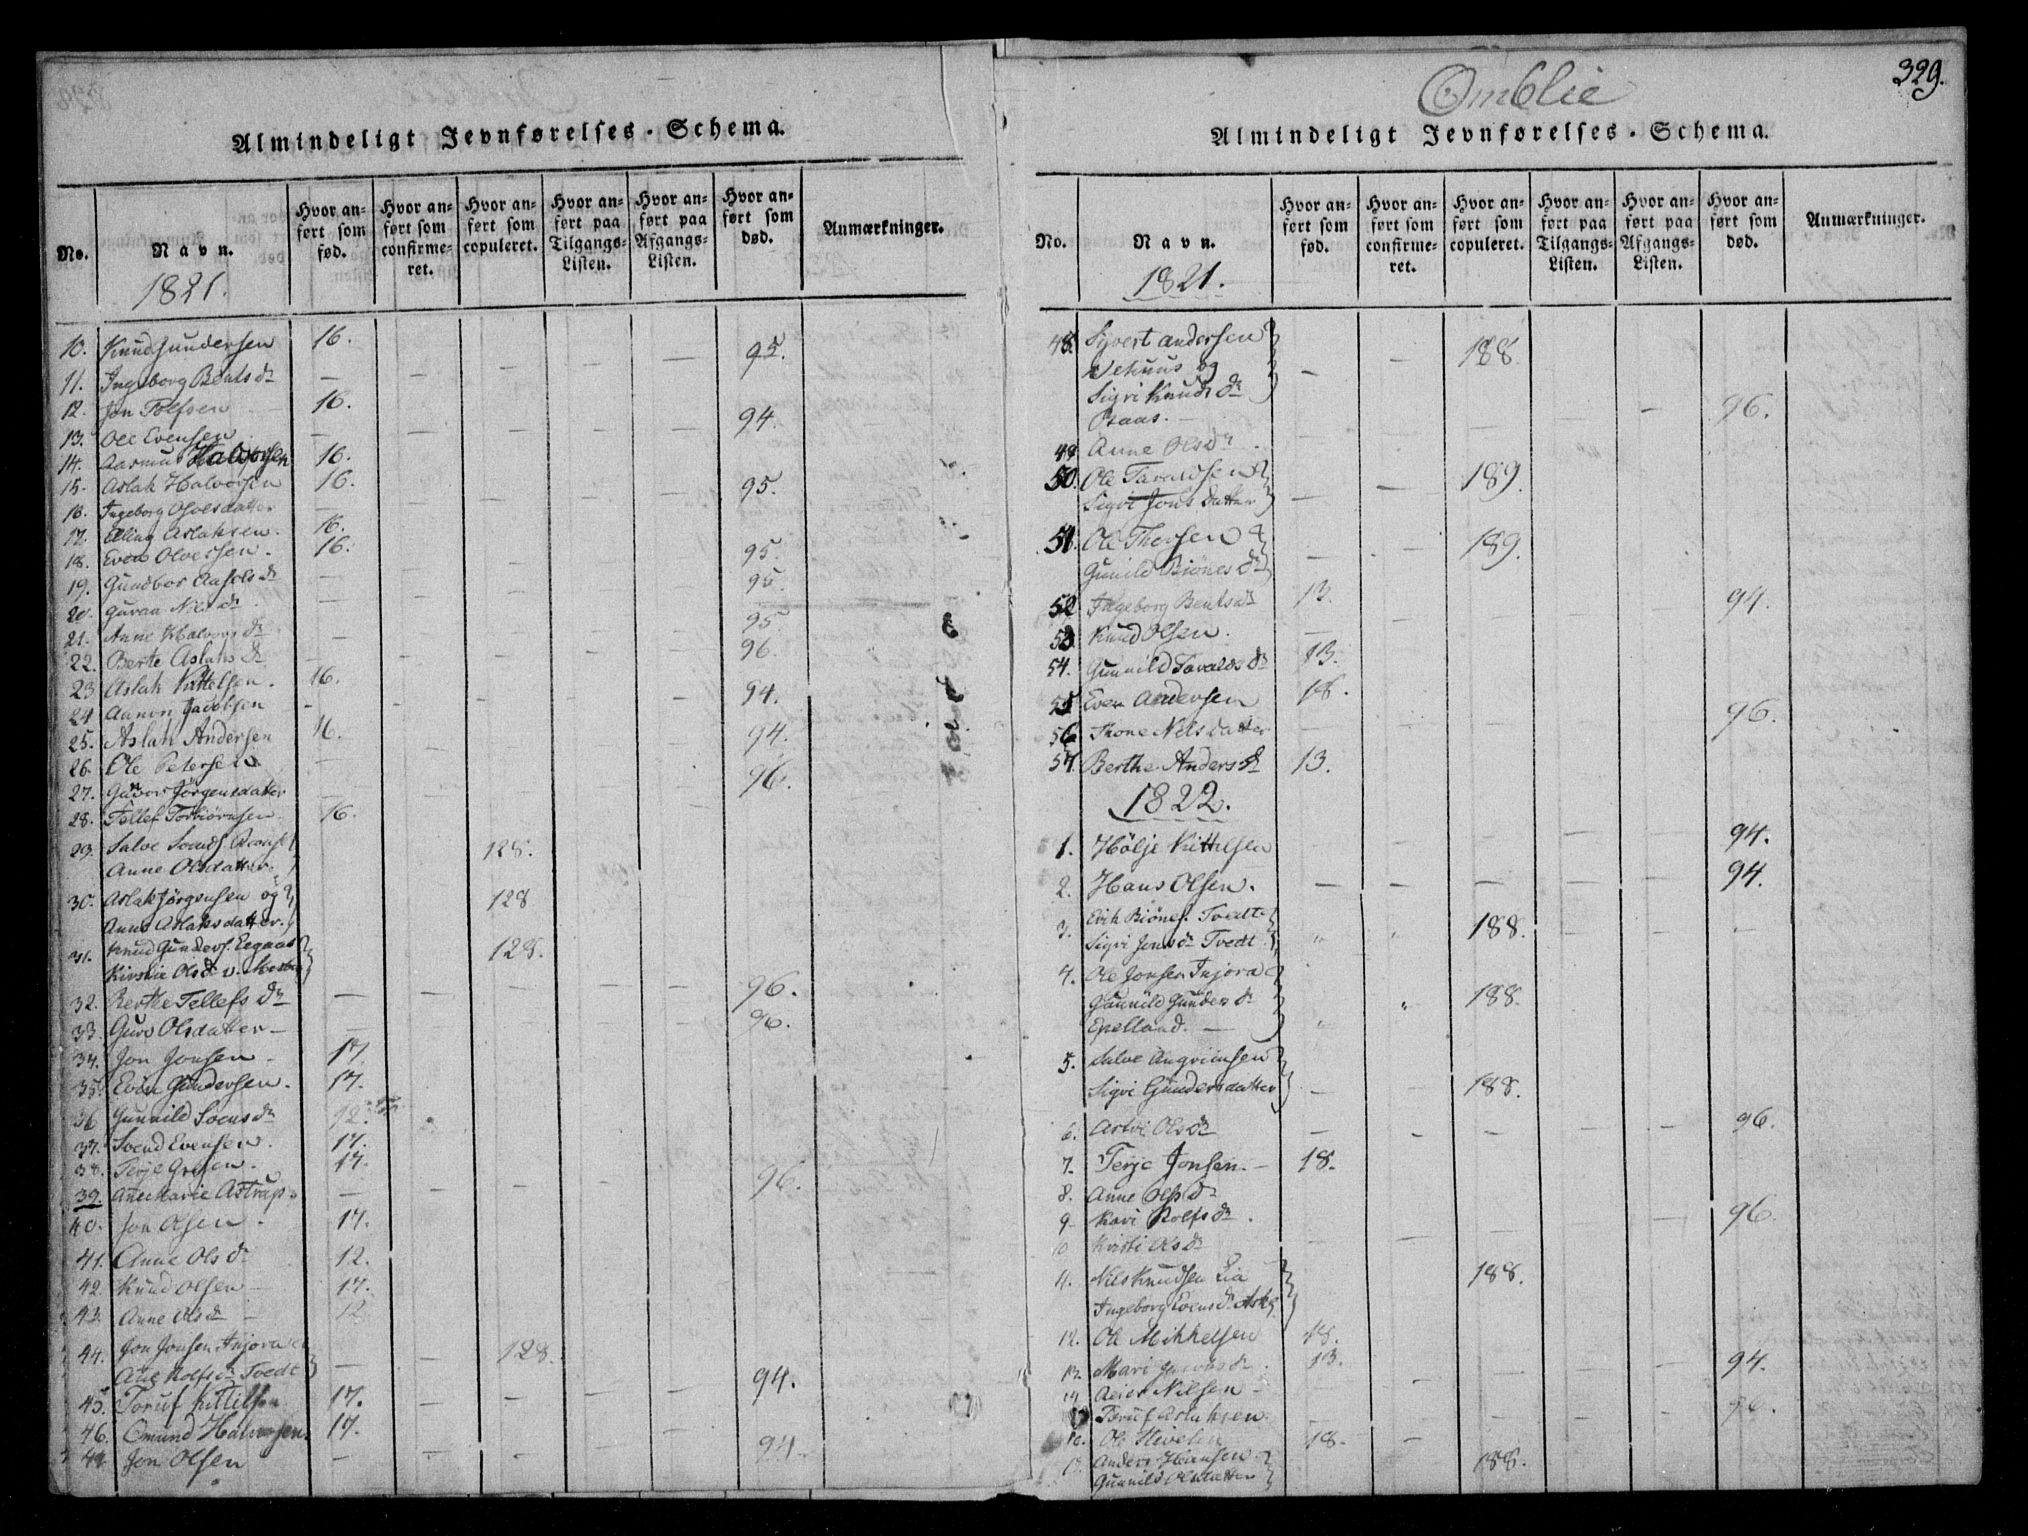 Almindeligt Jevnførelses-Schema.
No.
Navn.
Hvor anført som fød.
Hvor anført som confirmeret.
Hvor anført som copuleret.
Hvor anført paa Tilgangs-Listen.
Hvor anført paa Afgangs-Listen.
Hvor anført som død.
Anmærkninger.
1821.
10. Knud Gundersen 16.
11. Ingeborg Bents dr — 95.
12. Jon Tolfsen 16.
13. Ole Evensen — 94.
14. Aasmund Halvorsen 16.
15. Aslak Halvorsen 16.
16. Ingeborg Olvesdatter — 95.
17. Elling Aslaksen. 16.
18. Even Olversen. 16.
19. Gundbor Aasols dr — 95.
20. Guraa Nils dr — 95.
21. Anne Halvors dr — 95.
22. Berte Aslaks dr — 96
23 Aslak Kittelsen. 16.
24 Aanon Jacobsen — 94.
25. Aslan Andersen 16.
26. Ole Petersen — 94.
27. Gunbor Jörgensdatter — 96.
28. Tellef Torbiörnsen 16.
29. Salve Svends.
Anne Olsdatter. 128.
30. Aslak Jörgensen og
Anne Aslaksdatter. 128
31. Knud Gunders. Eegaas
Kirstie Ols dr v. 128.
32. Berthe Tellefs dr — 96.
33. Guro Olsdatter — 96.
34. Jon Jonsen — 17.
35. Even Gundersen. 17.
36 Gunnild Svens dr 12.
37. Svend Evensen. 17.
38. Terje 17.
39. Anne Marie Astrup — 96.
40. Jon Olsen. 17.
41. Anne Ols dr 12.
42. Knud Olsen — 17.
43. Anne Ols dr — 12
44. Jon Jonsen Injora
Ane Rolfs dr Tvedt 128.
94.
45. Toruf Kittilsen 17.
46. Omund Halvorsen. 17.
47 Jon Olsen — 94.
Omblie
329.
Almindeligt Jevnførelses-Schema.
No.
Navn.
Hvor anført som fød.
Hvor anført som confirmeret.
Hvor anført som copuleret.
Hvor anført paa Tilgangs-Listen.
Hvor anført paa Afgangs-Listen.
Hvor anført som død.
Anmærkninger.
1821.
48. Syvert Andersen
Vehuus og
Sigri Knuds dr
Osaas. — 188
49 Anne Ols dr. 96.
50. Ole Taraldsen
Sigri Jons Datter 189.
51. Ole Thorsen
Gunild Biönes dr 189.
52 Ingeborg Bents dr 13.
53 Knud Olsen. — 94.
54. Gunnild Taralds dr 13.
55 Even Andersen 18.
56 Thone Nils datter — 96.
57. Berthe Anders dr 13.
1822.
1. Hölje Kittelsen 94.
2. Hans Olsen. — 94.
3. Erik Biöns. Tvedt
Sigri Jons dr Tvedt 188.
4. Ole Jonsen Injora
Gunnild Gunders dr
Epelland. — 188.
5. Salve Angrimsen
Sigri Gundersdatter 188.
6. Ols dr — 96.
7. Terje Jonsen. — 18.
8. Anne Ols dr
9 Kari Rolfs dr. — 96.
10 Kristi Ols dr
11. Nils Knudsen Lia
Ingeborg Evens dr 188.
12. Ole Mikkelsen 18.
13. Mari dr. 13.
14 Nilsen — 94.
Toruf Aslaksen. — 96.
16. Ole 18.
Anders Hansen
Gunnild Olsdatter 188.